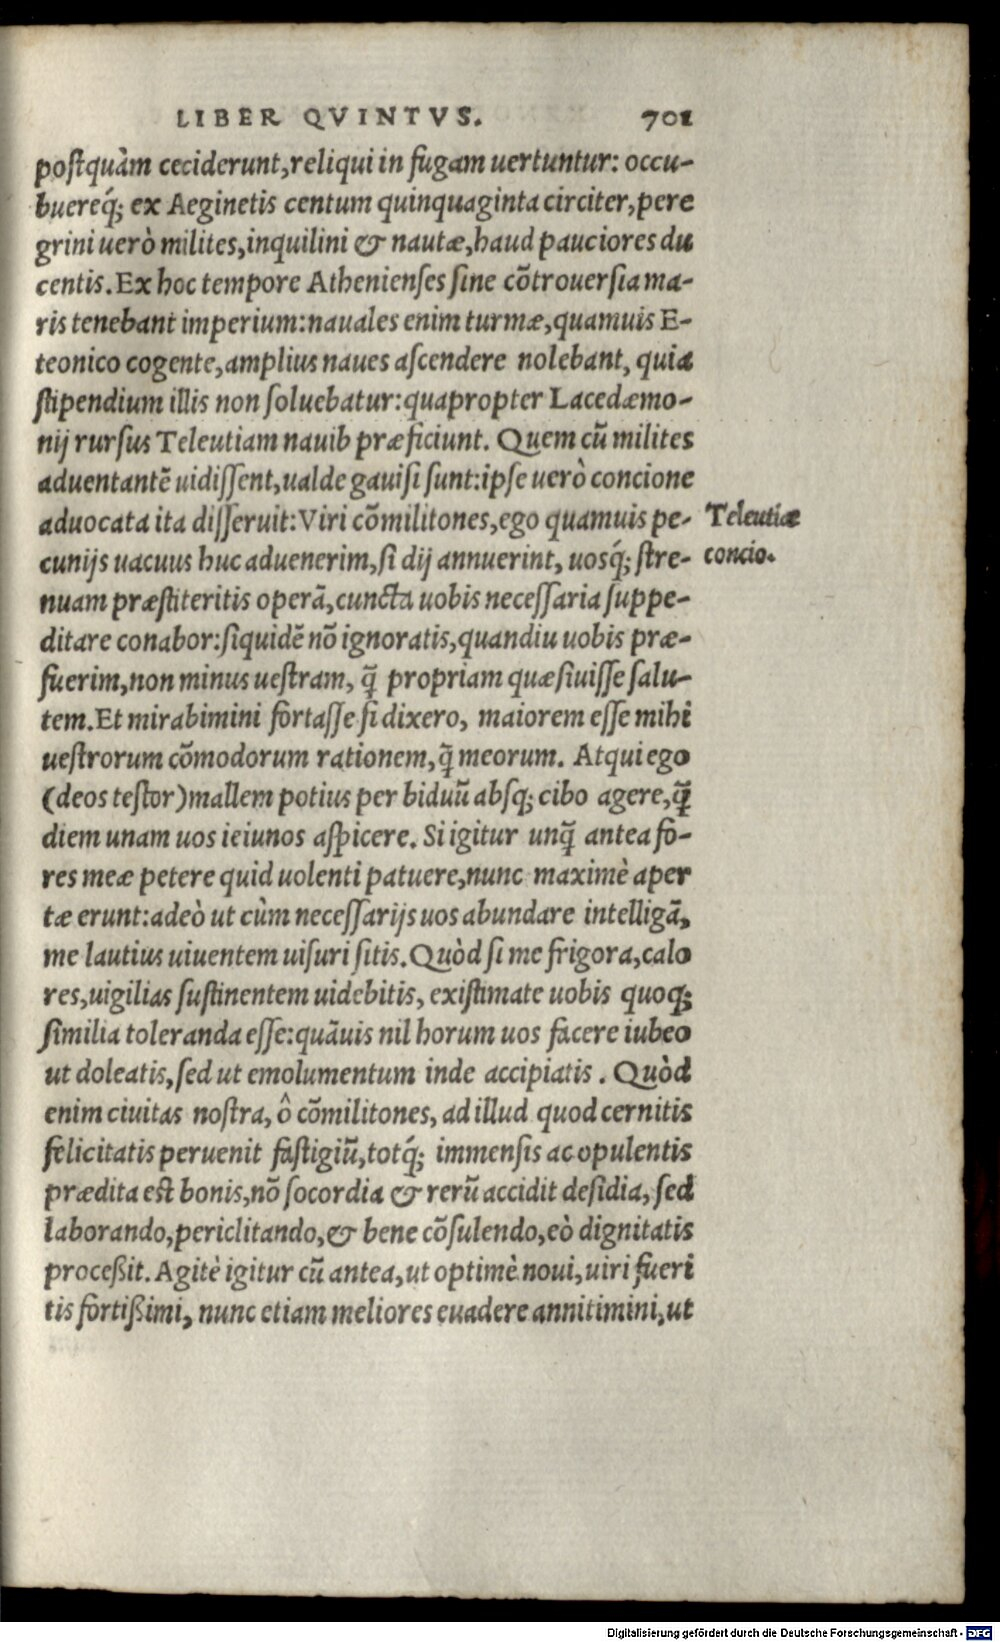 LIBER QVINTVS. 701
postquàm ceciderunt, reliqui in fugam uertuntur: occu-
buereq́; ex Aeginetis centum quinquaginta circiter, pere
grini uerò milites, inquilini & nautæ, haud pauciores du
centis. Ex hoc tempore Athenienses sine cõtrouersia ma-
ris tenebant imperium: nauales enim turmæ, quamuis E-
teonico cogente, amplius naues ascendere nolebant, quia
stipendium illis non soluebatur: quapropter Lacedæmo-
nij rursus Teleutiam nauib præficiunt. Quem cũ milites
aduentantẽ uidissent, ualde gauisi sunt: ipse uerò concione
aduocata ita disseruit: Viri cõmilitones, ego quamuis pe-
Teleutiæ
cunijs uacuus huc aduenerim, si dij annuerint, uosq́; stre-
concio.
nuam præstiteritis operã, cuncta uobis necessaria suppe-
ditare conabor: siquidẽ nõ ignoratis, quandiu uobis præ-
fuerim, non minus uestram, q̃ propriam quæsiuisse salu-
tem. Et mirabimini fortasse si dixero, maiorem esse mihi
uestrorum cõmodorum rationem, q̃ meorum. Atqui ego
(deos testor) mallem potius per biduũ absq; cibo agere, q̃
diem unam uos ieiunos aspicere. Si igitur unq̃ antea fo-
res meæ petere quid uolenti patuere, nunc maximè aper
tæ erunt: adeò ut cùm necessarijs uos abundare intelligã,
me lautius uiuentem uisuri sitis. Quòd si me frigora, calo
res, uigilias sustinentem uidebitis, existimate uobis quoq;
similia toleranda esse: quãuis nil horum uos facere iubeo
ut doleatis, sed ut emolumentum inde accipiatis. Quòd
enim ciuitas nostra, ô cõmilitones, ad illud quod cernitis
felicitatis peruenit fastigiũ, totq́; immensis ac opulentis
prædita est bonis, nõ socordia & rerũ accidit desidia, sed
laborando, periclitando, & bene cõsulendo, eò dignitatis
proceßit. Agitè igitur cũ antea, ut optimè noui, uiri fueri
tis fortißimi, nunc etiam meliores euadere annitimini, ut
Digitalisierung gefördert durch die Deutsche Forschungsgemeinschaft - DFG